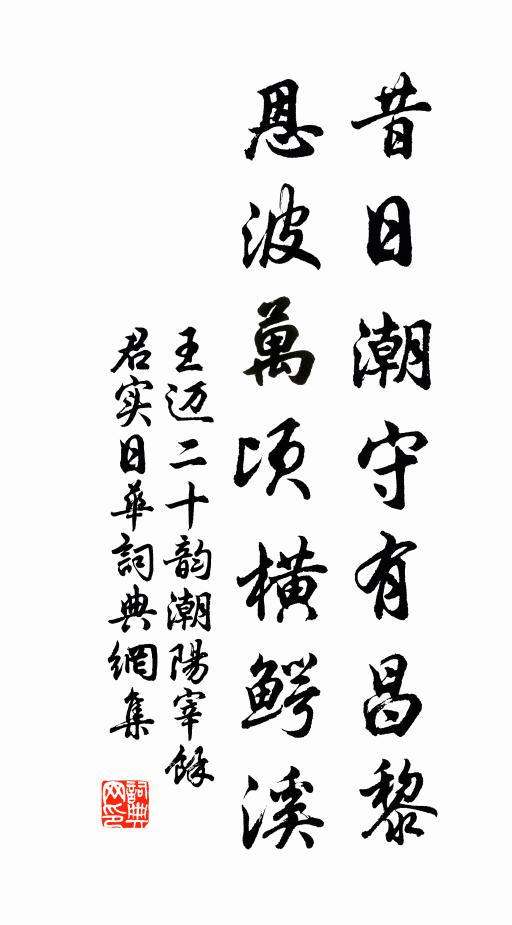 昔日潮守有昌黎
恩波萬頃橫鳄溪
王迈二十韵潮陽宰餘
君实日華詞典網集
詞典
网印